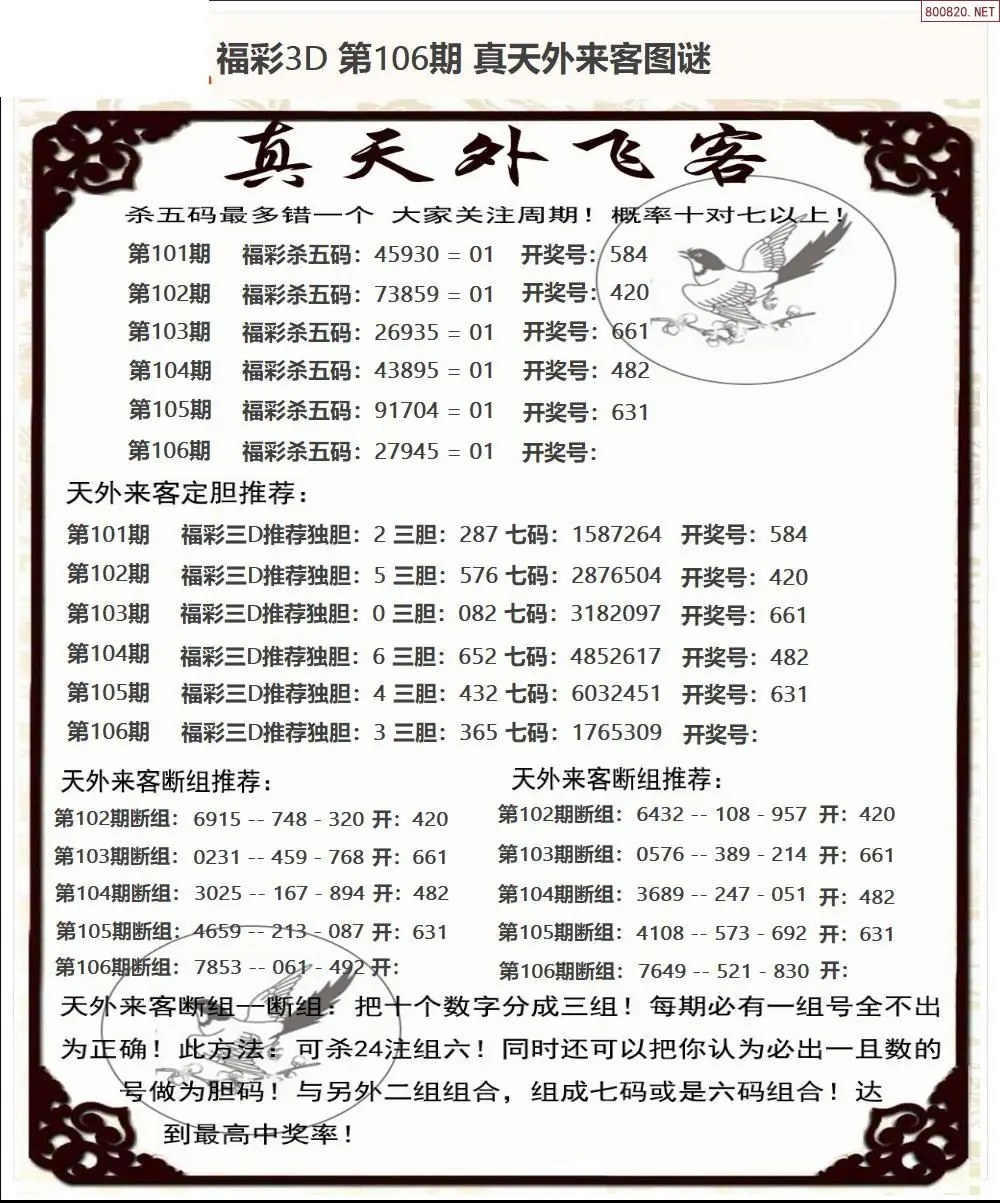 800820.NET
福彩3D 第106期 真天外来客图谜
真天外飞客
杀五码最多错一个 大家关注周期！概率十对七以上！
第101期 福彩杀五码：45930 = 01 开奖号：584
第102期 福彩杀五码：73859 = 01 开奖号：420
第103期 福彩杀五码：26935 = 01 开奖号：661
第104期 福彩杀五码：43895 = 01 开奖号：482
第105期 福彩杀五码：91704 = 01 开奖号：631
第106期 福彩杀五码：27945 = 01 开奖号：
天外来客定胆推荐：
第101期 福彩三D推荐独胆：2 三胆：287 七码：1587264 开奖号：584
第102期 福彩三D推荐独胆：5 三胆：576 七码：2876504 开奖号：420
第103期 福彩三D推荐独胆：0 三胆：082 七码：3182097 开奖号：661
第104期 福彩三D推荐独胆：6 三胆：652 七码：4852617 开奖号：482
第105期 福彩三D推荐独胆：4 三胆：432 七码：6032451 开奖号：631
第106期 福彩三D推荐独胆：3 三胆：365 七码：1765309 开奖号：
天外来客断组推荐：
第102期断组：6915 -- 748 - 320 开：420
第103期断组：0231 -- 459 - 768 开：661
第104期断组：3025 -- 167 - 894 开：482
第105期断组：4659 -- 213 - 087 开：631
第106期断组：7853 -- 061 - 492 开：
天外来客断组推荐：
第102期断组：6432 -- 108 - 957 开：420
第103期断组：0576 -- 389 - 214 开：661
第104期断组：3689 -- 247 - 051 开：482
第105期断组：4108 -- 573 - 692 开：631
第106期断组：7649 -- 521 - 830 开：
天外来客断组一断组：把十个数字分成三组！每期必有一组号全不出
为正确！此方法：可杀24注组六！同时还可以把你认为必出一且数的
号做为胆码！与另外二组组合，组成七码或是六码组合！达
到最高中奖率！